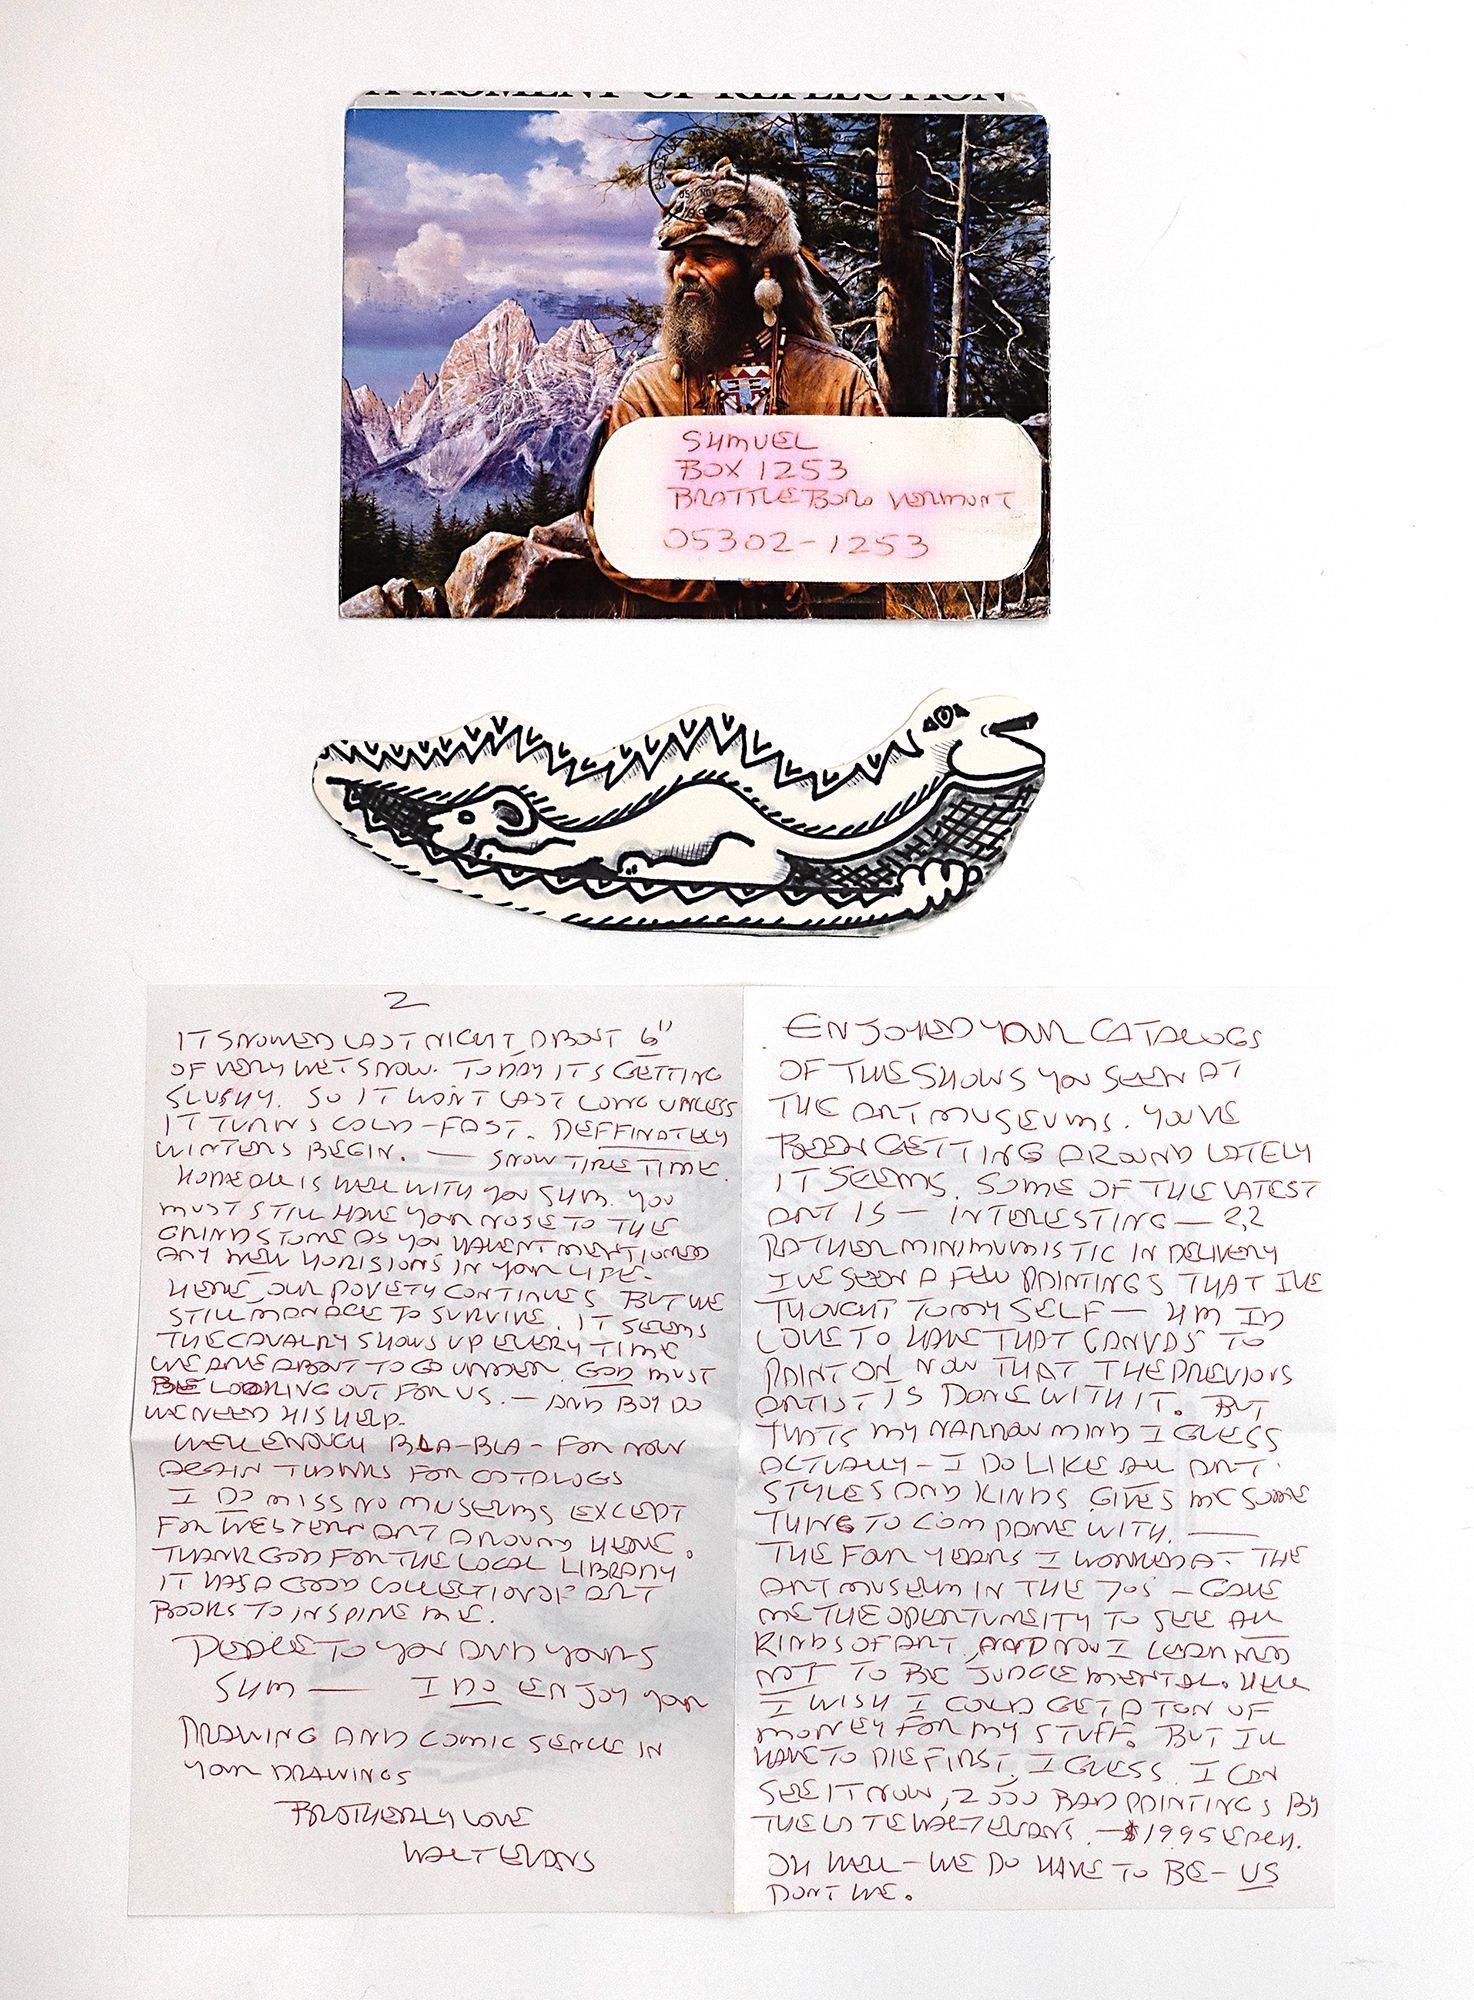 A MOMENT OF REFLECTION
05 NOV
SHMUEL
BOX 1253
BRATTLEBORO VERMONT
05302-1253
2
IT SNOWED LAST NIGHT, ABOUT 6"
OF VERY WET SNOW. TODAY IT'S GETTING
SLUSHY. SO IT WON'T LAST LONG UNLESS
IT TURNS COLD-FAST. DEFFINATELY
WINTERS BEGIN. — SNOW TIRE TIME.
HOPE ALL IS WELL WITH YOU SHM. YOU
MUST STILL HAVE YOUR NOSE TO THE
GRINDSTONE AS YOU HAVENT MENTIONED
ANY NEW HORISIONS IN YOUR LIFE.
HERE, OUR POVETY CONTINUES BUT WE
STILL MANAGE TO SURVIVE. IT SEEMS
THE CAVALRY SHOWS UP EVERY TIME
WE ARE ABOUT TO GO UNDER. GOD MUST
BE LOOKING OUT FOR US. — AND BOY DO
WE NEED HIS HELP.
WELL ENOUGH BLA-BLA- FOR NOW
AGAIN THANKS FOR CATALOGS
I DO MISS NO MUSEUMS EXCEPT
FOR WESTERN ART AROUND HERE.
THANK GOD FOR THE LOCAL LIBRARY
IT HAS A GOOD COLLECTION OF ART
BOOKS TO INSPIRE ME.
PEACE TO YOU AND YOURS
SHM — I DO ENJOY YOUR
DRAWING AND COMIC SENCE IN
YOUR DRAWINGS
BROTHERLY LOVE
WALT EVANS
ENJOYED YOUR CATALOGS
OF THE SHOWS YOU SEEN AT
THE ART MUSEUMS. YOU'VE
BEEN GETTING AROUND LATELY
IT SEEMS. SOME OF THE LATEST
ART IS — INTERESTING — ?,?
RATHER MINIMUMISTIC IN DELIVERY
I'VE SEEN A FEW PAINTINGS THAT I'VE
THOUGHT TO MY SELF — HM I'D
LOVE TO HAVE THAT CANVAS TO
PAINT ON NOW THAT THE PREVIOUS
ARTIST IS DONE WITH IT. BUT
THATS MY NARROW MIND I GUESS
ACTUALLY — I DO LIKE ALL ART
STYLES AND KINDS GIVES ME SOME
THING TO COMPARE WITH. —
THE FOUR YEARS I WORKED AT THE
ART MUSEUM IN THE 70S — GAVE
ME THE OPERTUNEITY TO SEE ALL
KINDS OF ART, AND NOW I LEARNED
NOT TO BE JUDGEMENTAL. WELL
I WISH I COULD GET A TON OF
MONEY FOR MY STUFF. BUT I'LL
HAVE TO DIE FIRST, I GUESS. I CAN
SEE IT NOW, 2000 BAD PAINTINGS BY
THE LATE WALT EVANS. — $1995 EACH.
OH WELL — WE DO HAVE TO BE — US
DON'T WE.